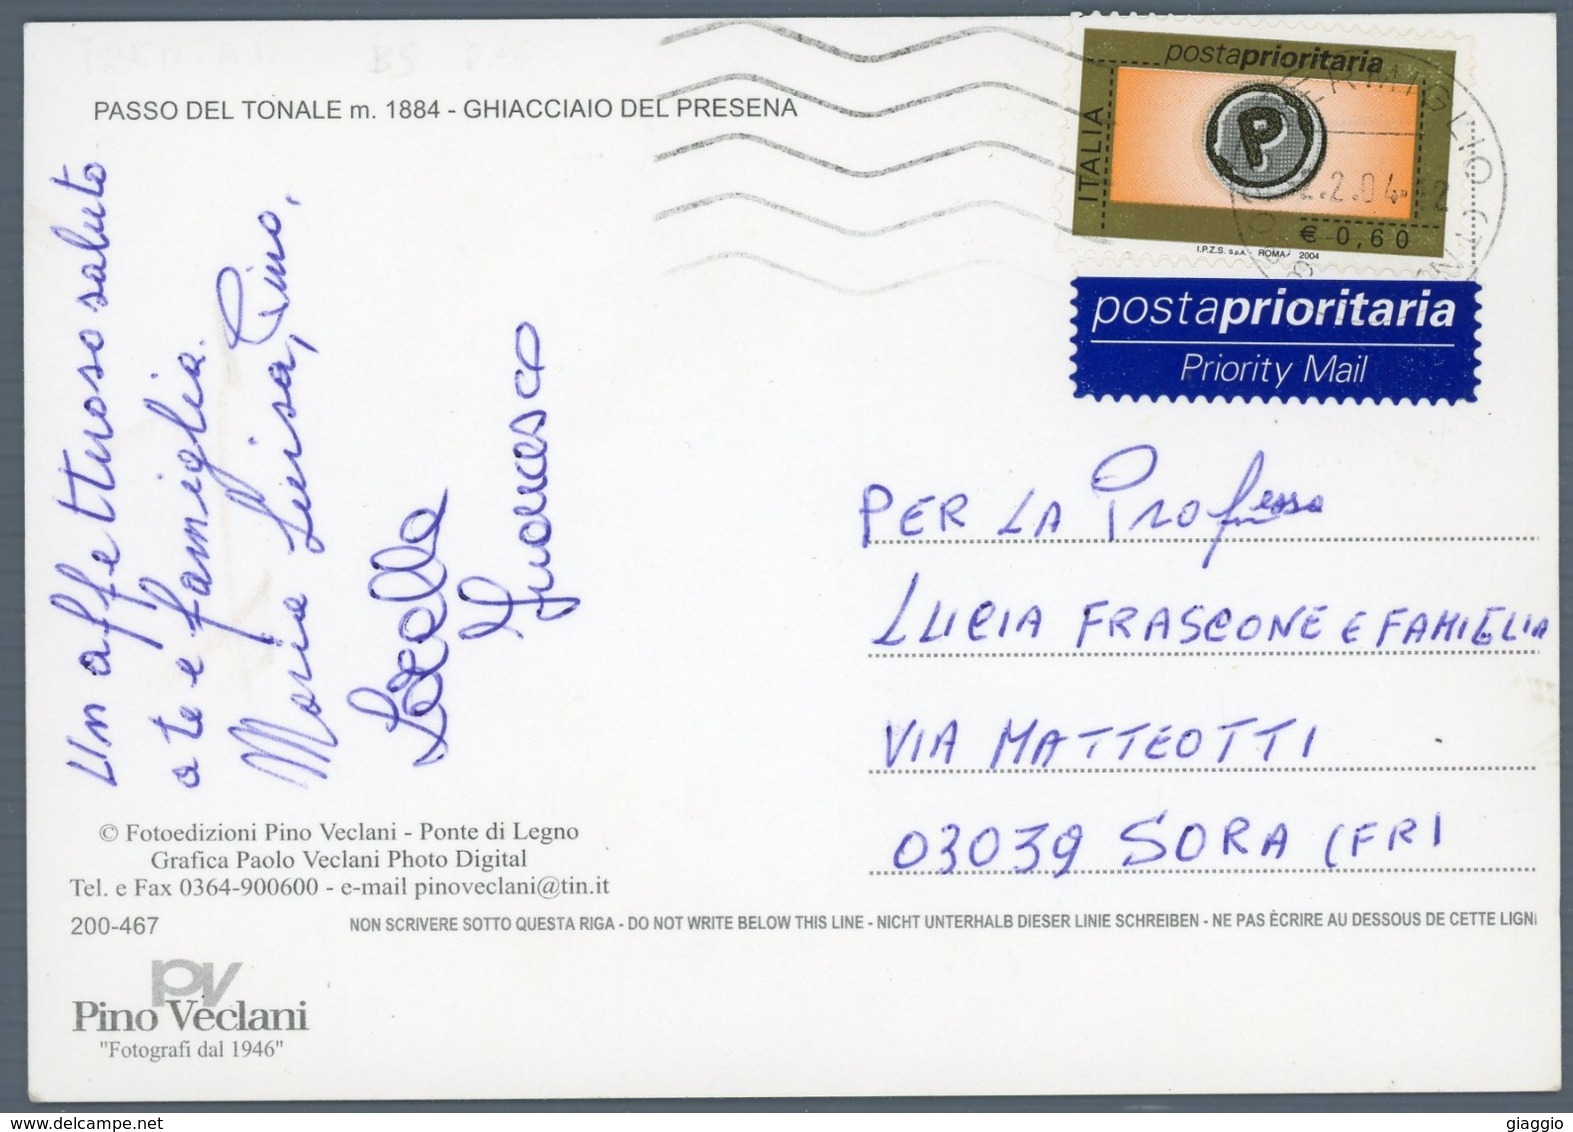 PASSO DEL TONALE m. 1884 - GHIACCIAIO DEL PRESENA
Un affettuoso saluto
a te e famiglia.
Maria Luisa, Pino,
Francesco
© Fotoedizioni Pino Veclani - Ponte di Legno
Grafica Paolo Veclani Photo Digital
Tel. e Fax 0364-900600 - e-mail pinoveclani@tin.it
200-467
NON SCRIVERE SOTTO QUESTA RIGA - DO NOT WRITE BELOW THIS LINE - NICHT UNTERHALB DIESER LINIE SCHREIBEN - NE PAS ÈCRIRE AU DESSOUS DE CETTE LIGN
PV
Pino Veclani
"Fotografi dal 1946"
postaprioritaria
ITALIA
P
€ 0,60
I.P.Z.S. S.p.A. - ROMA - 2004
VERMIGLIO
2.2.04-12
postaprioritaria
Priority Mail
PER LA Professa
LUCIA FRASCONE E FAMIGLIA
VIA MATTEOTTI
03039 SORA (FR)
giaggio